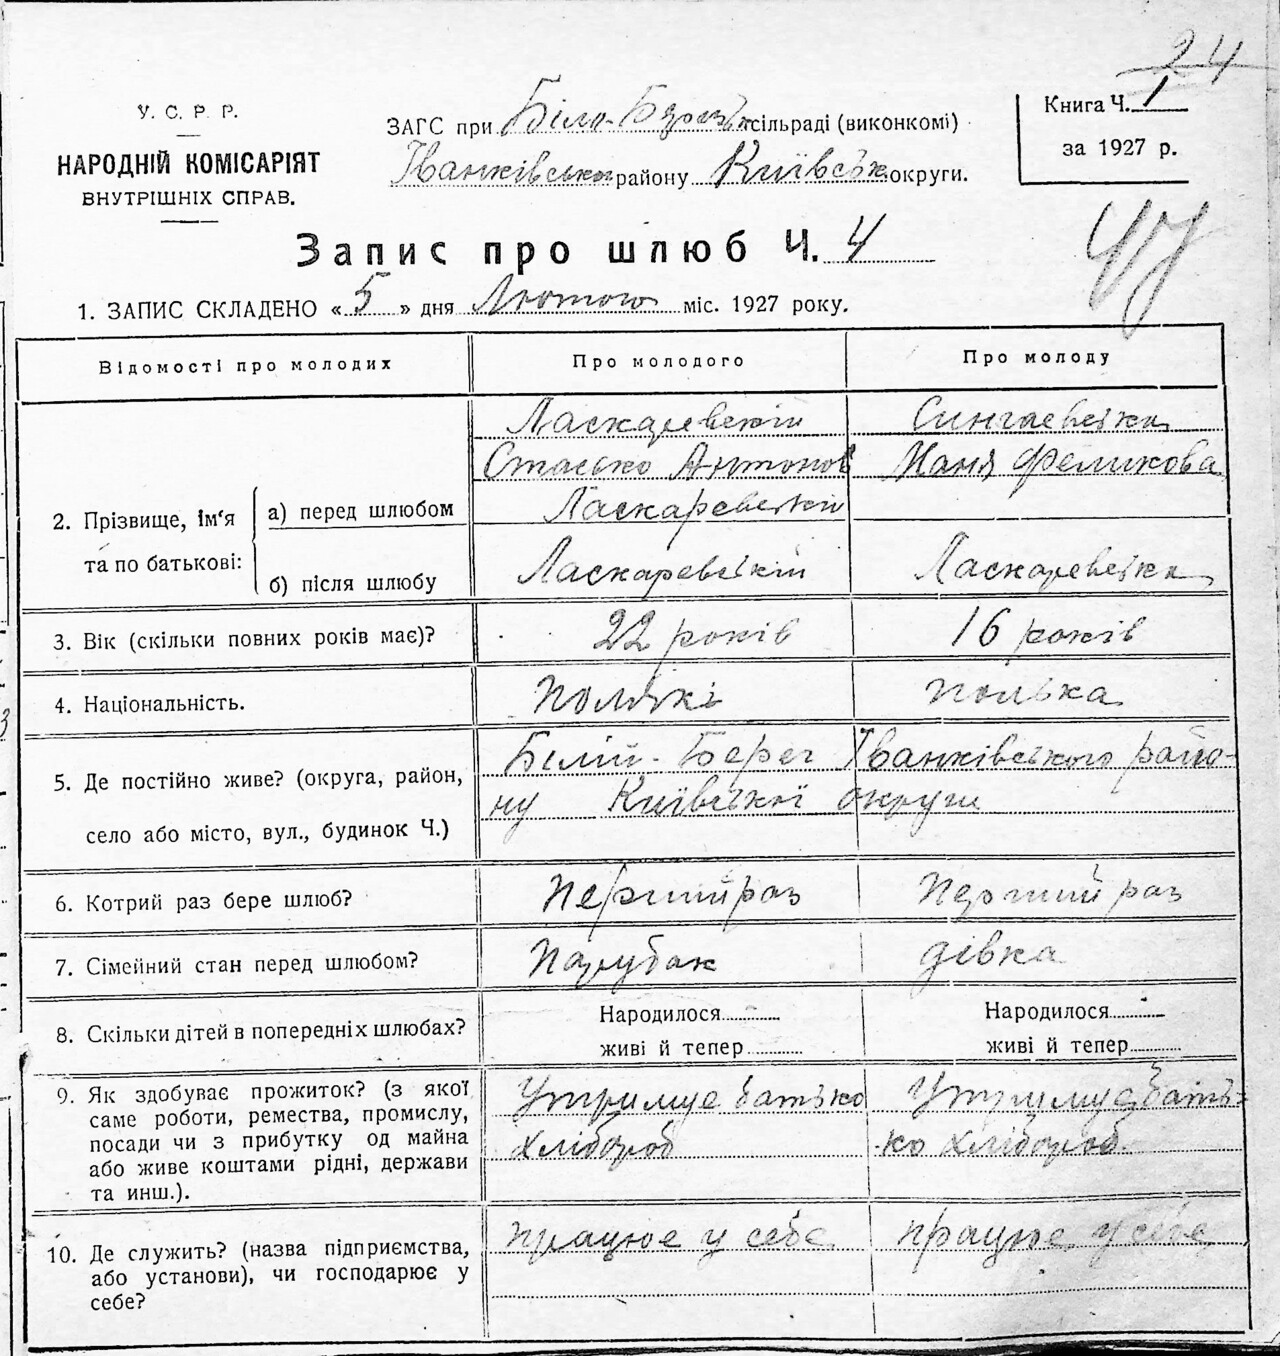 24
У. С. Р. Р.
НАРОДНІЙ КОМІСАРІЯТ
ВНУТРІШНІХ СПРАВ.
ЗАГС при Біло-Березькій сільраді (виконкомі)
Іванківського району Київськ. округи.
Книга Ч. 1
за 1927 р.
Запис про шлюб Ч. 4
47
1. ЗАПИС СКЛАДЕНО « 5 » дня Лютого міс. 1927 року.
Відомості про молодих Про молодого Про молоду
2. Прізвище, ім'я та по батькові:
а) перед шлюбом
Ласкаревскій Сингаевська
Стасько Антонов Маня Феликова
Ласкаревскій
б) після шлюбу Ласкаревській Ласкаревська
3. Вік (скільки повних років має)? 22 років 16 років
4. Національність. Поляк Полька
5. Де постійно живе? (округа, район, село або місто, вул., будинок Ч.)
Білий-Берег Іванківського райо-
ну Київської округи
6. Котрий раз бере шлюб? Перший раз Перший раз
7. Сімейний стан перед шлюбом? Парубок дівка
8. Скільки дітей в попередніх шлюбах? Народилося Народилося
живі й тепер живі й тепер
9. Як здобуває прожиток? (з якої саме роботи, ремества, промислу, посади чи з прибутку од майна або живе коштами рідні, держави та инш.).
Утримує батько Утримує бать-
хлібороб ко хлібороб
10. Де служить? (назва підприємства, або установи), чи господарює у себе?
працює у себе працює у себе